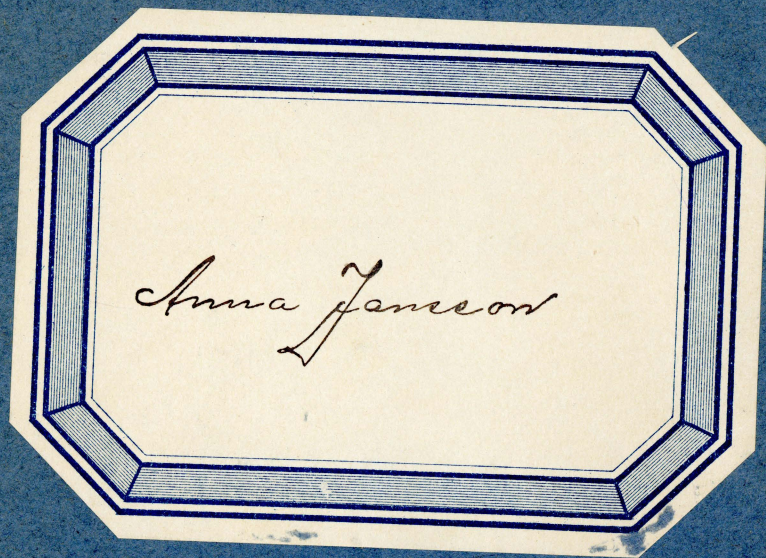 Anna Jansson